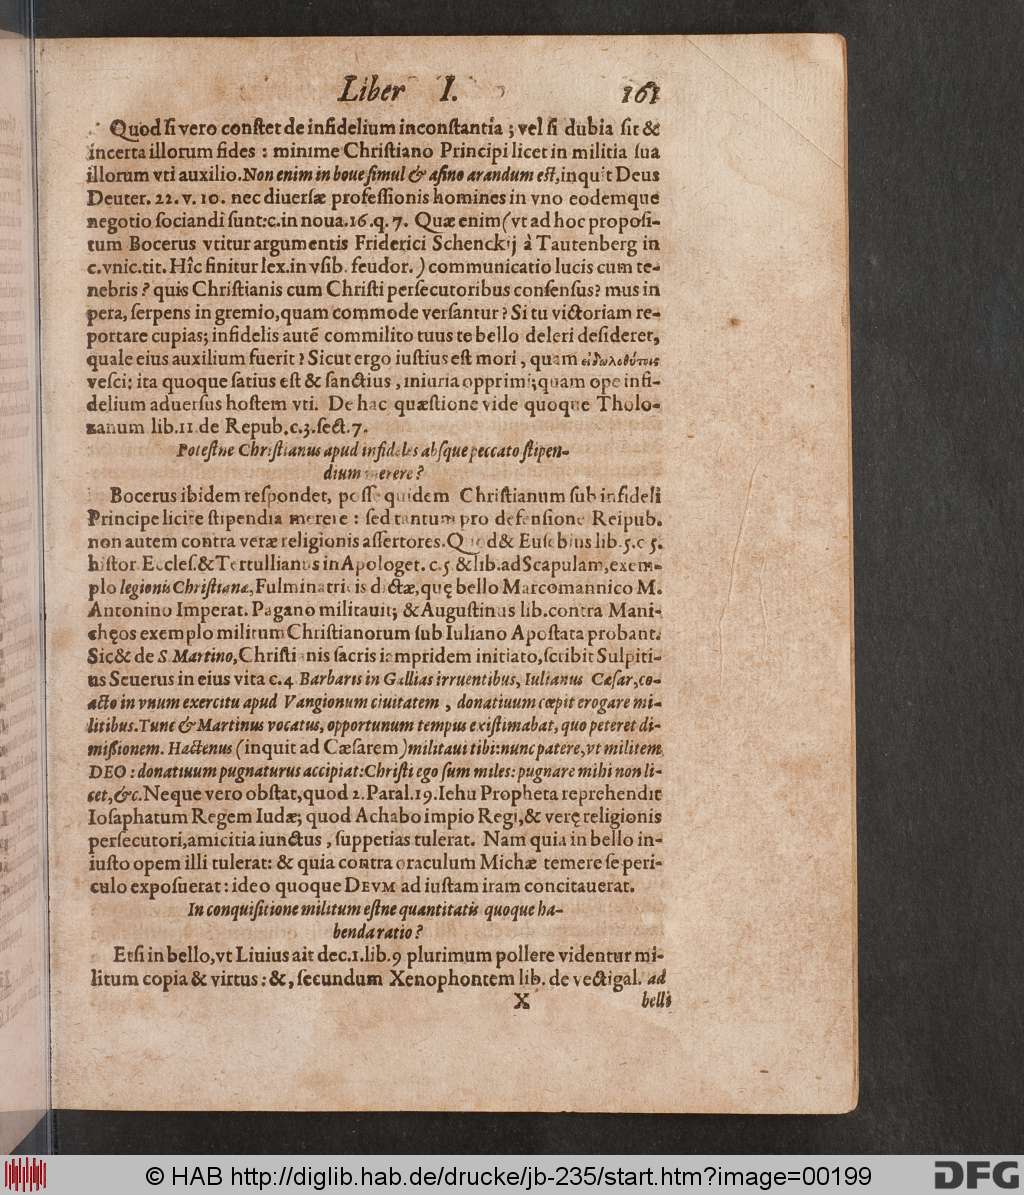 Liber I. 161
Quod ſi vero conſtet de infidelium inconſtantia; vel ſi dubia ſit &
incerta illorum fides: minime Chriſtiano Principi licet in militia ſua
illorum vti auxilio. Non enim in boue ſimul & aſino arandum eſt, inquit Deus
Deuter. 22. v. 10. nec diuerſæ profeſſionis homines in vno eodemque
negotio ſociandi ſunt: c. in noua. 16. q. 7. Quæ enim (vt ad hoc propoſi-
tum Bocerus vtitur argumentis Friderici Schenckij à Tautenberg in
c. vnic. tit. Hîc finitur lex. in vſib. feudor.) communicatio lucis cum te-
nebris? quis Chriſtianis cum Chriſti perſecutoribus conſenſus? mus in
pera, ſerpens in gremio, quam commode verſantur? Si tu victoriam re-
portare cupias; infidelis autē commilito tuus te bello deleri deſideret,
quale eius auxilium fuerit? Sicut ergo iuſtius eſt mori, quam εἰδωλοθύτοις
veſci: ita quoque ſatius eſt & ſanctius, iniuria opprimi; quam ope infi-
delium aduerſus hoſtem vti. De hac quæſtione vide quoque Tholo-
zanum lib. 11 de Repub. c. 3. ſect. 7.
Poteſtne Chriſtianus apud infideles abſque peccato ſtipen-
dium merere?
Bocerus ibidem reſpondet, poſſe quidem Chriſtianum ſub infideli
Principe licite ſtipendia merere: ſed tantum pro defenſione Reipub.
non autem contra veræ religionis aſſertores. Quod & Euſebius lib. 5. c 5.
hiſtor. Eccleſ. & Tertullianus in Apologet. c. 5. & lib. ad Scapulam, exem-
plo legionis Chriſtianæ, Fulminatricis dictæ, quę bello Marcomannico M.
Antonino Imperat. Pagano militauit; & Auguſtinus lib. contra Mani-
chęos exemplo militum Chriſtianorum ſub Iuliano Apoſtata probant.
Sic & de S. Martino, Chriſtianis ſacris iampridem initiato, ſcribit Sulpiti-
us Seuerus in eius vita c. 4 Barbaris in Gallias irruentibus, Iulianus Cæſar, co-
acto in vnum exercitu apud Vangionum ciuitatem, donatiuum cœpit erogare mi-
litibus. Tunc & Martinus vocatus, opportunum tempus exiſtimabat, quo peteret di-
miſſionem. Hactenus (inquit ad Cæſarem) militaui tibi: nunc patere, vt militem
DEO: donatiuum pugnaturus accipiat: Chriſti ego ſum miles: pugnare mihi non li-
cet, &c. Neque vero obſtat, quod 2. Paral. 19. Iehu Propheta reprehendit
Ioſaphatum Regem Iudæ; quod Achabo impio Regi, & verę religionis
perſecutori, amicitia iunctus, ſuppetias tulerat. Nam quia in bello in-
iuſto opem illi tulerat: & quia contra oraculum Michæ temere ſe peri-
culo expoſuerat: ideo quoque DEVM ad iuſtam iram concitauerat.
In conquiſitione militum eſtne quantitatis quoque ha-
benda ratio?
Etſi in bello, vt Liuius ait dec. 1. lib. 9 plurimum pollere videntur mi-
litum copia & virtus: &, ſecundum Xenophontem lib. de vectigal. ad
X belli
© HAB http://diglib.hab.de/drucke/jb-235/start.htm?image=00199
DFG